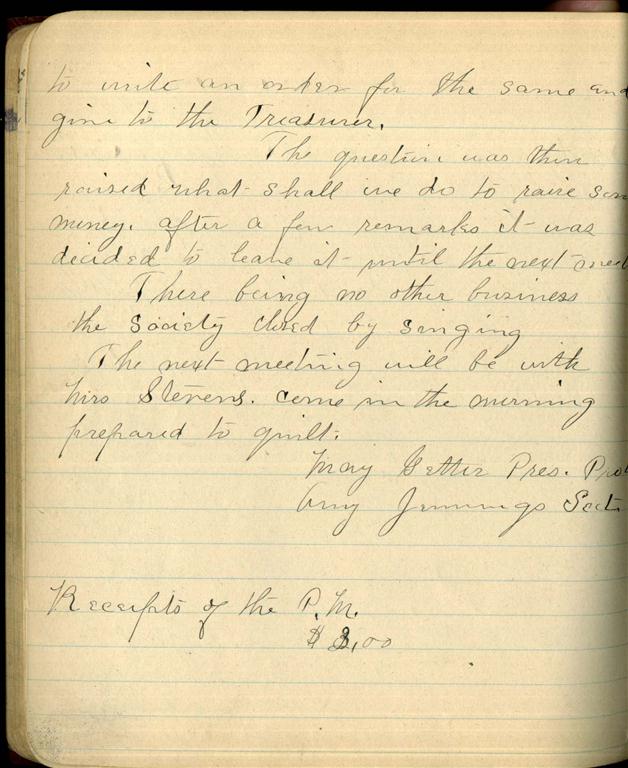 to write an order for the same and
give to the Treasurer.
The question was then
raised what shall we do to raise som
money. after a few remarks it was
decided to leave it until the next meet
There being no other business
the Society closed by singing
The next meeting will be with
Mrs Stevens. come in the morning
prepared to quilt.
May Getter Pres. Pro
Amy Jennings Sect.
Receipts of the P.M.
$ 3.00